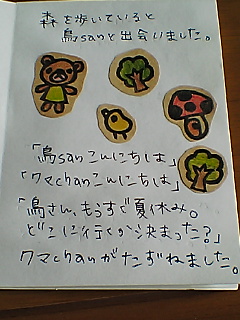 森を歩いていると
鳥sanと出会いました。
「鳥sanこんにちは」
「クマchanこんにちは」
「鳥さん、もうすぐ夏休み。
どこに行くか決まった?」
クマchanがたずねました。